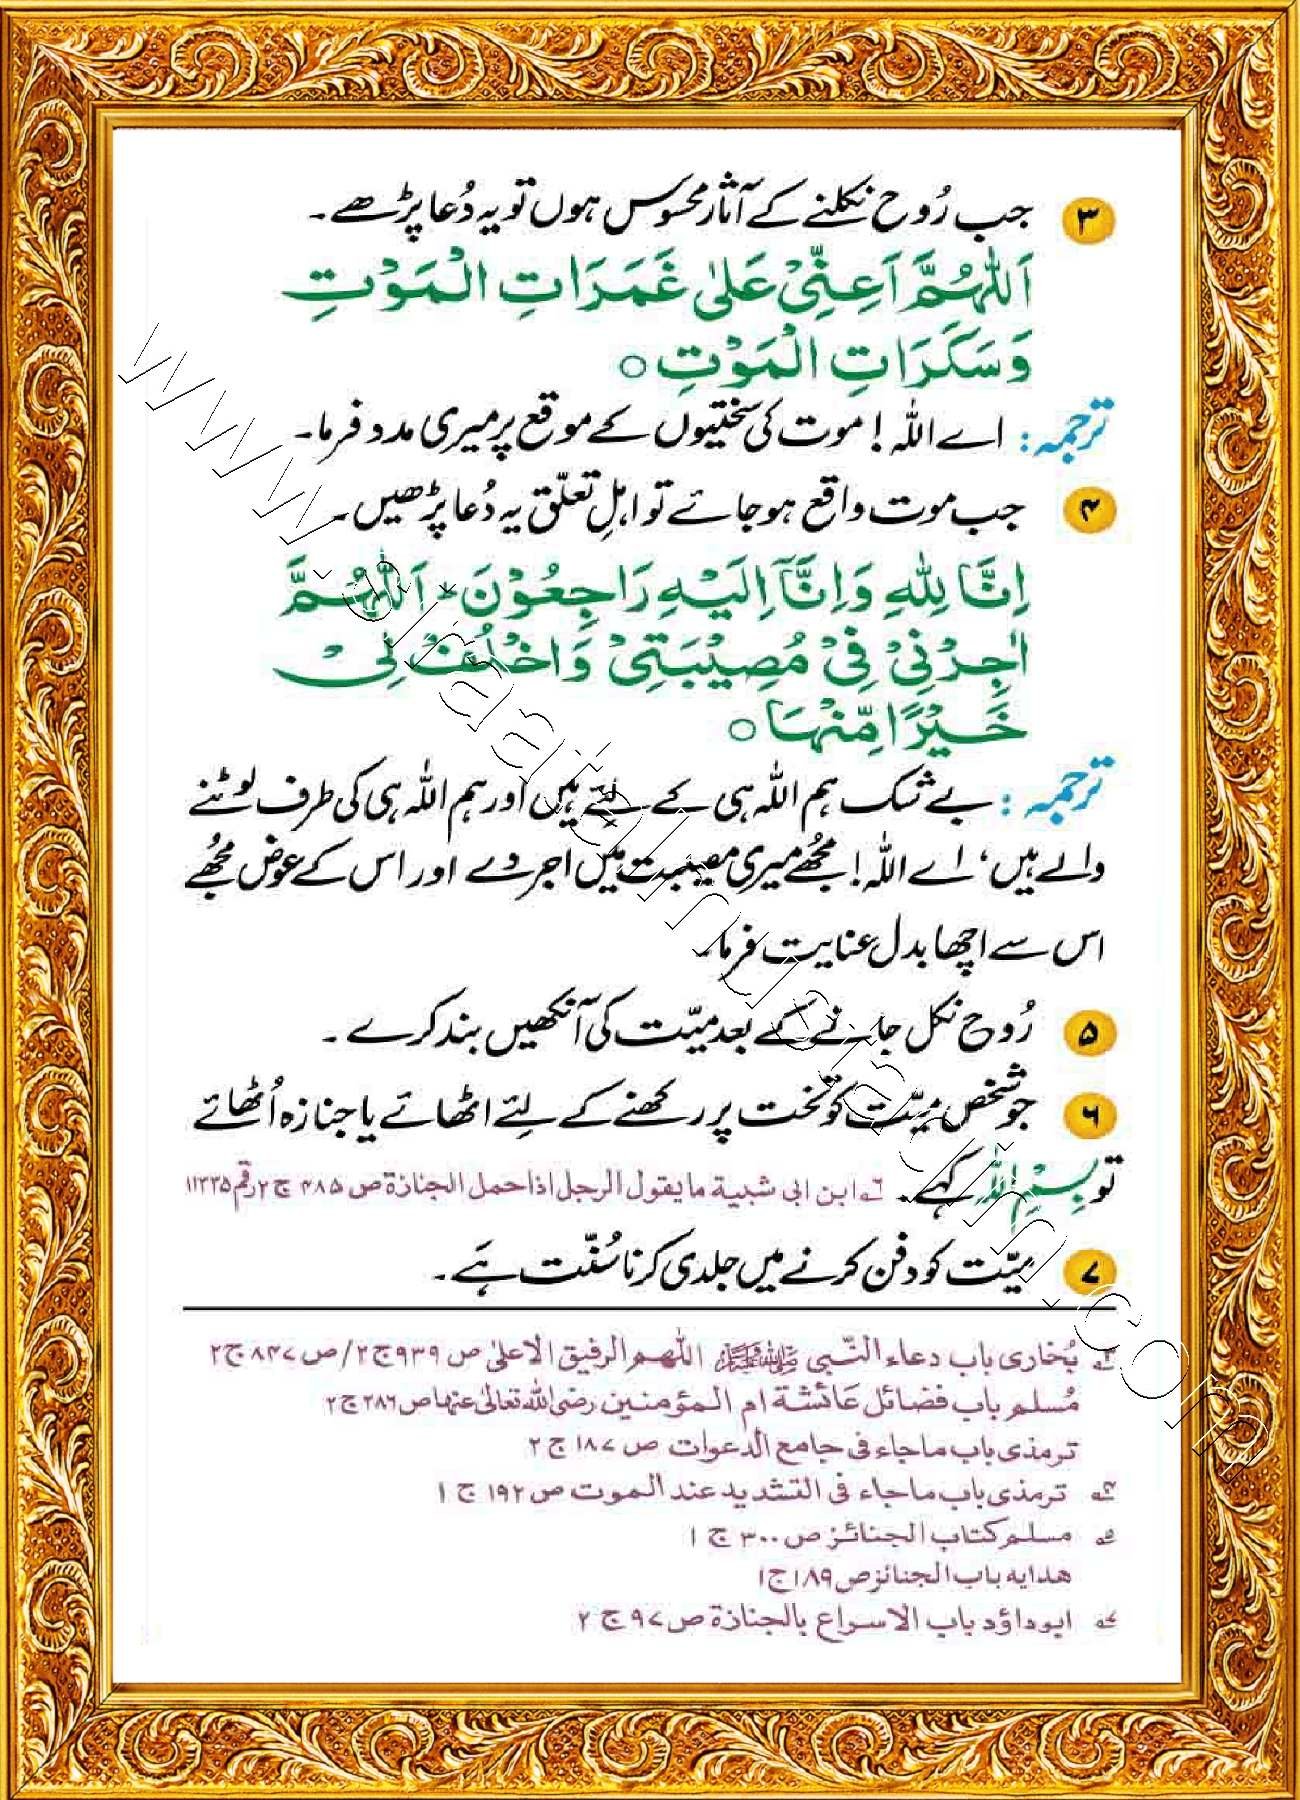 ۳ جب رُوح نکلنے کے آثار محسوس ہوں تو یہ دُعا پڑھے۔
اَللّٰهُمَّ اَعِنِّيْ عَلٰى غَمَرَاتِ الْمَوْتِ
وَسَكَرَاتِ الْمَوْتِ ○
ترجمہ: اے اللہ! موت کی سختیوں کے موقع پر میری مدد فرما۔
۴ جب موت واقع ہوجائے تو اہلِ تعلّق یہ دُعا پڑھیں۔
اِنَّا لِلّٰهِ وَاِنَّآ اِلَيْهِ رَاجِعُوْنَ * اَللّٰهُمَّ
اٰجِرْنِيْ فِيْ مُصِيْبَتِيْ وَاخْلُفْ لِيْ
خَيْرًا مِّنْهَا ○
ترجمہ: بے شک ہم اللہ ہی کے لئے ہیں اور ہم اللہ ہی کی طرف لوٹنے
والے ہیں، اے اللہ! مجھے میری مصیبت میں اجر دے اور اس کے عوض مجھے
اس سے اچھا بدل عنایت فرما۔
۵ رُوح نکل جانے کے بعد میّت کی آنکھیں بند کرے۔
۶ جو شخص میّت کو تخت پر رکھنے کے لئے اٹھائے یا جنازہ اُٹھائے
تو بِسْمِ اللّٰهِ کہے۔ ۶ ابن ابی شبیة مایقول الرجل اذا حمل الجنازة ص ۴۸۵ ج ۲ رقم ۱۱۳۳۵
۷ میّت کو دفن کرنے میں جلدی کرنا سُنّت ہے۔
۳ بُخاری باب دعاء النّبی ﷺ اللّٰهم الرفیق الاعلیٰ ص ۹۳۹ ج ۲ / ص ۸۴۷ ج ۲
مُسلم باب فضائل عَائشة ام المؤمنین رضی اللہ تعالیٰ عنہا ص ۲۸۶ ج ۲
ترمذی باب ماجاء فی جامع الدعوات ص ۱۸۷ ج ۲
۴ ترمذی باب ماجاء فی التشدید عند الموت ص ۱۹۲ ج ۱
۵ مسلم کتاب الجنائز ص ۳۰۰ ج ۱
هدایه باب الجنائز ص ۱۸۹ ج ۱
۷ ابوداؤد باب الاسراع بالجنازة ص ۹۷ ج ۲